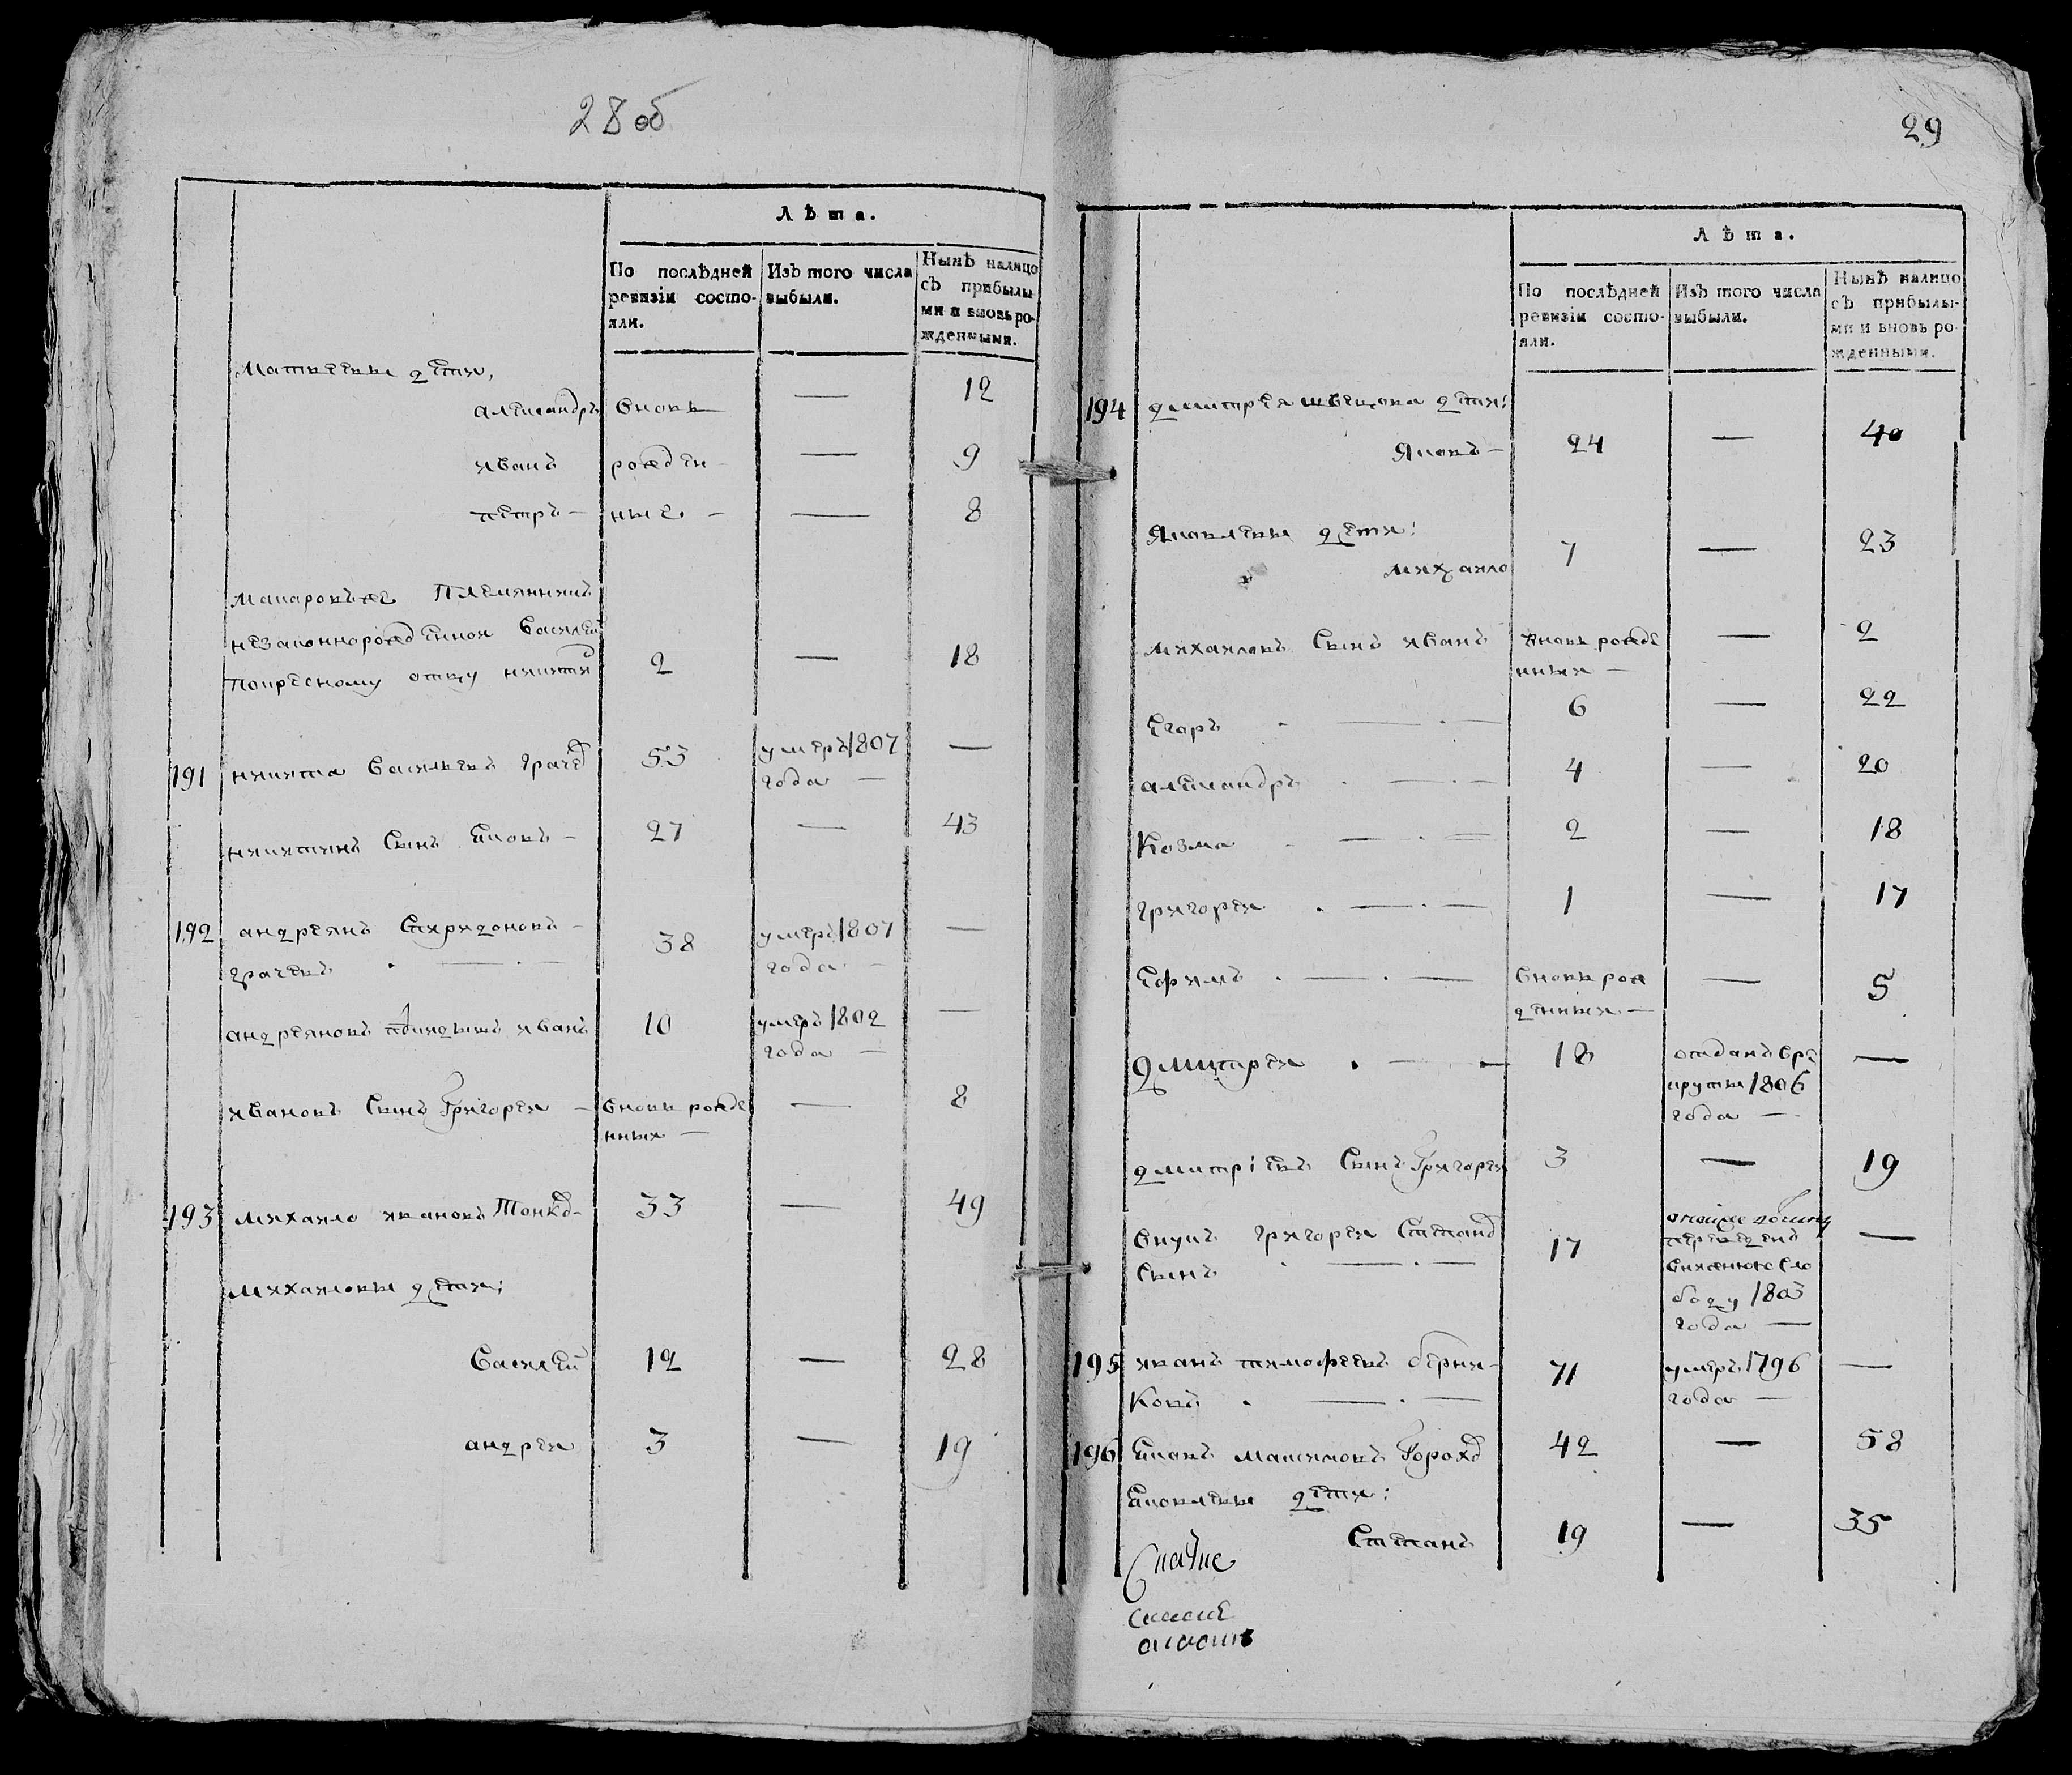 28 об
Лѣта.
По послѣдней ревизіи состо-
яли.
Изъ того числа
выбыли.
Нынѣ налицо
съ прибылы
ми и вновь ро-
жденными.
Матвѣевы дети,
александръ вновь — 12
иванъ рожден- — 9
петръ — ные — 8
макаровъже племянникъ
незаконнорожденной василей
покресному отцу никитѣ 2 — 18
191 никита васильевъ грачев 53 умеръ 1807 —
года —
никитинъ сынъ Яковъ — 27 — 43
192 андреянъ спиридоновъ — 38 умеръ 1807 —
грачевъ . — . — года —
андреяновъ иванъ 10 умеръ 1802 —
года —
ивановъ сынъ григорей — вновь рожде — 8
нныи —
193 михаило ивановъ 33 — 49
михаиловы дети:
василей 12 — 28
андрей 3 — 19
29
Лѣта.
По послѣдней
ревизіи состо-
яли.
Изъ того числа
выбыли.
Нынѣ налицо
съ прибылы-
ми и вновь ро-
жденными.
194 дмитрея швецова дети:
Яковъ — 24 — 40
Яковлевы дети:
михаило 7 — 23
михаиловъ сынъ иванъ вновь рожде — 2
нныи —
Егоръ . — . — 6 — 22
александръ . — . — 4 — 20
Козма - — . — 2 — 18
григорей . — . — 1 — 17
Ефимъ . — . — вновь рож — 5
денныи —
Дмитрей . — — 18 отданъ вре —
круты 1806
года —
дмитріевъ сынъ григорей 3 — 19
внукъ григорей степанов 17 —
сынъ . — . — переведенъ
сло
боду 1803
года —
195 иванъ тимофеевъ берни- 71 умеръ 1796 —
ковъ . — . — года —
196 Яковъ максимовъ горохов 42 — 58
Яковлевы дети:
Степанъ 19 — 35